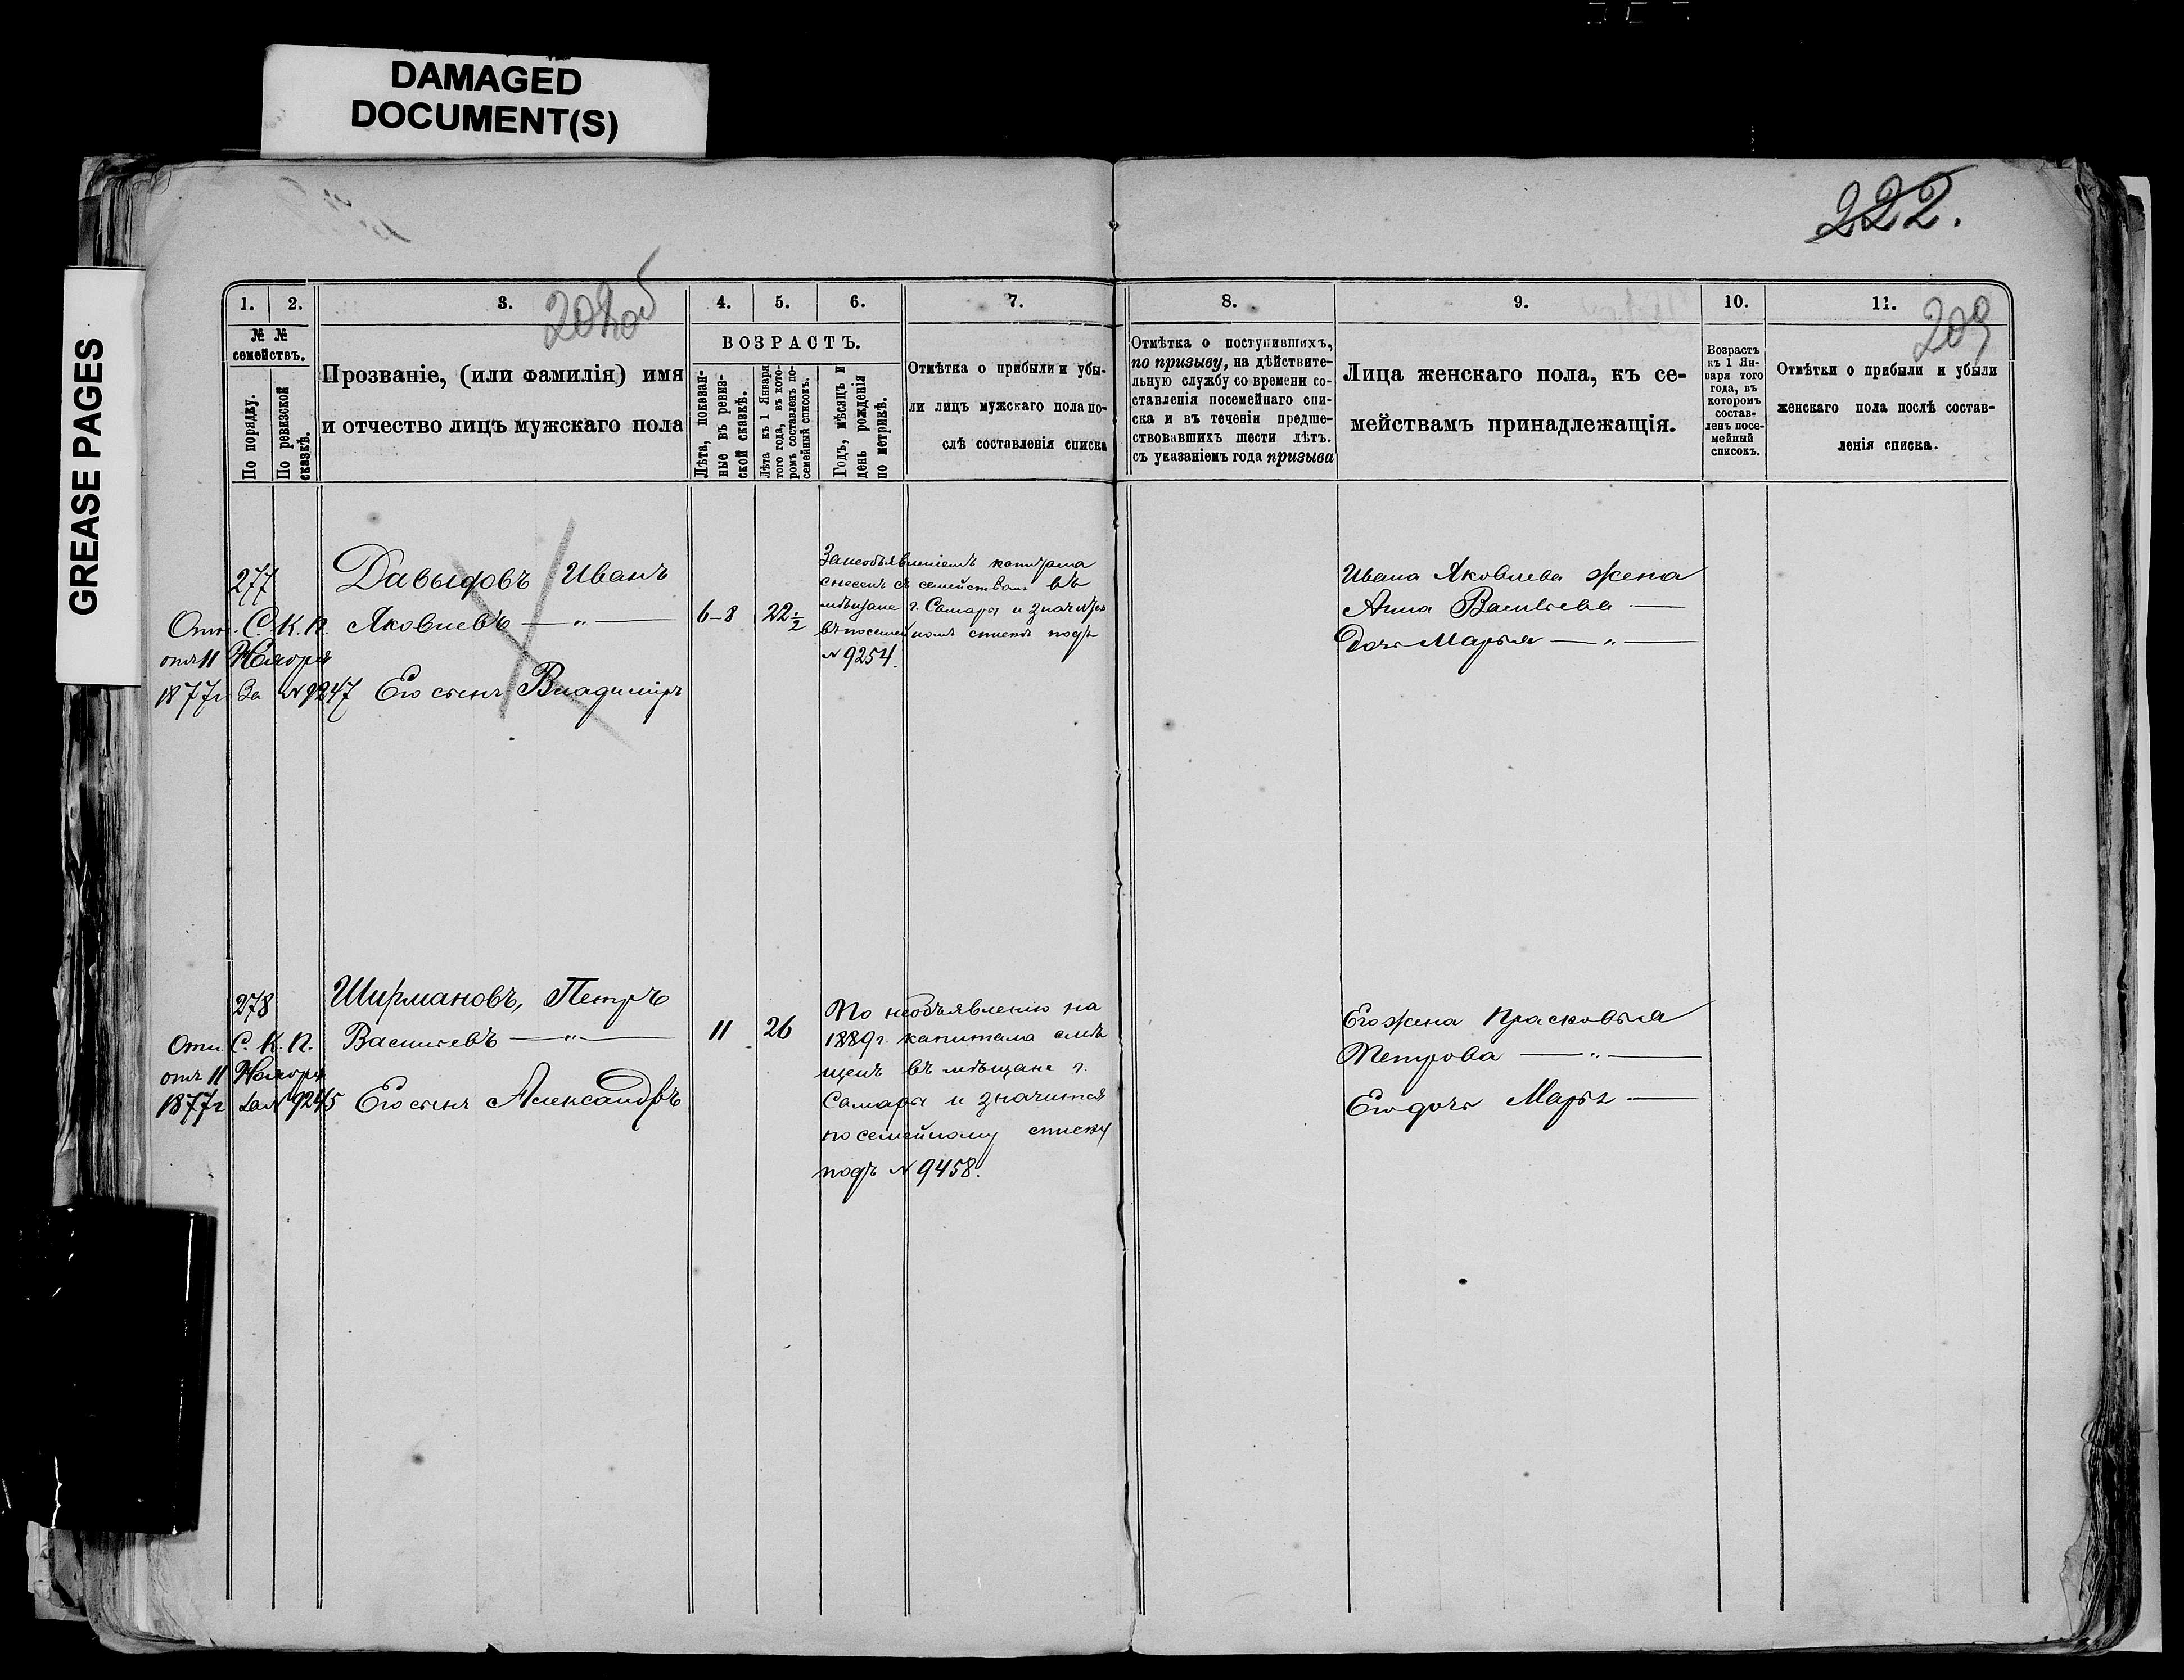 DAMAGED
DOCUMENT(S)
GREASE PAGES
222.
208 об
209
1. 2. 3. 4. 5. 6. 7. 8. 9. 10. 11.
№ №
семействъ.
По порядку.
По ревизской
сказкѣ.
Прозваніе, (или фамилія) имя
и отчество лицъ мужскаго пола
ВОЗРАСТЪ.
Лѣта, показан-
ные въ ревиз-
ской сказкѣ.
Лѣта къ 1 Января
того года, въ кото-
ромъ составленъ по-
семейный списокъ.
Годъ, мѣсяцъ и
день рожденія
по метрикѣ.
Отмѣтка о прибыли и убы-
ли лицъ мужскаго пола по-
слѣ составленія списка
Отмѣтка о поступившихъ,
по призыву, на дѣйствите-
льную службу со времени со-
ставленія посемейнаго спи-
ска и въ теченіи предше-
ствовавшихъ шести лѣтъ.
съ указаніемъ года призыва
Лица женскаго пола, къ се-
мействамъ принадлежащія.
Возрастъ
къ 1 Ян-
варя того
года, въ
которомъ
состав-
ленъ посе-
мейный
списокъ.
Отмѣтки о прибыли и убыли
женскаго пола послѣ состав-
ленія списка.
277
Отн. С. К. П.
отъ 11 Ноября
1877г За № 9247
Давыдовъ Иванъ
Яковлевъ — „ —
Его сынъ Владиміръ
6–8
22 ½
За необъявленіемъ капитала
снесенъ съ семействомъ въ
мѣщане г. Самары и значится
въ посемейномъ спискѣ подъ
№ 9254.
Ивана Яковлева жена
Анна Васильева —
Дочь Марья — „ —
278
Отн. С. К. П.
отъ 11 Ноября
1877г За № 9245
Ширмановъ, Петръ
Васильевъ — „ —
Его сынъ Александръ
11
26
По необъявленію на
1889г. капитала смѣ
щенъ въ мѣщане г.
Самары и значится
по семейному списку
подъ № 9458.
Его жена Прасковья
Петрова — „ —
Его дочь Марья —